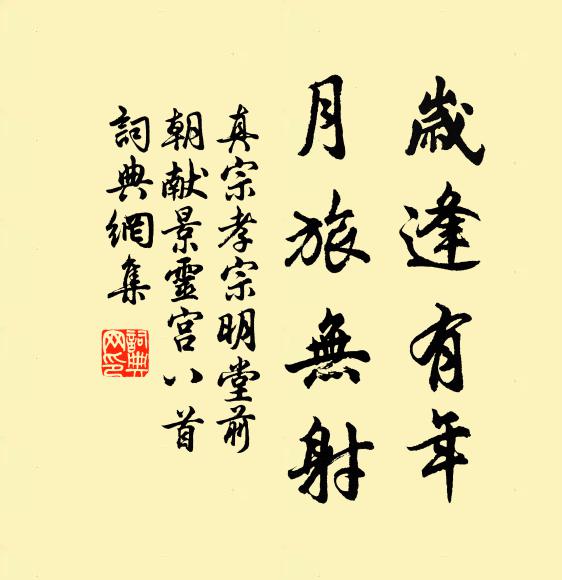 歲逢有年
月旅無射
真宗孝宗明堂前
朝献景靈宮八首
詞典網集
詞典網印